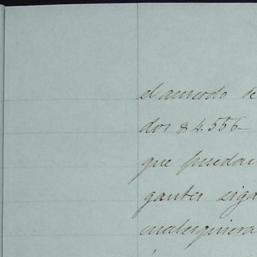 el acuerdo de
dos $4.556-
que puedan
gantes siga
cualesquiera